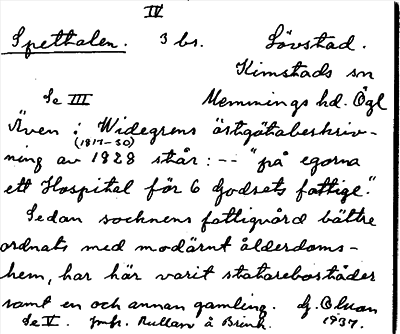 IV
Spetthalen. 3 bs. Lövstad.
Kimstads sn
Se III Memmings hd. Ögl
Även i Widegrens östgötabeskriv-
(1817-30)
ning av 1828 står: -- "på egorna
ett Hospital för 6 Godsets fattige."
Sedan socknens fattigvård bättre
ordnats med modärnt ålderdoms-
hem, har här varit statarebostäder
samt en och annan gamling. G. Olsson
Se V. Jmfr. Rullan å Brink. 1937.